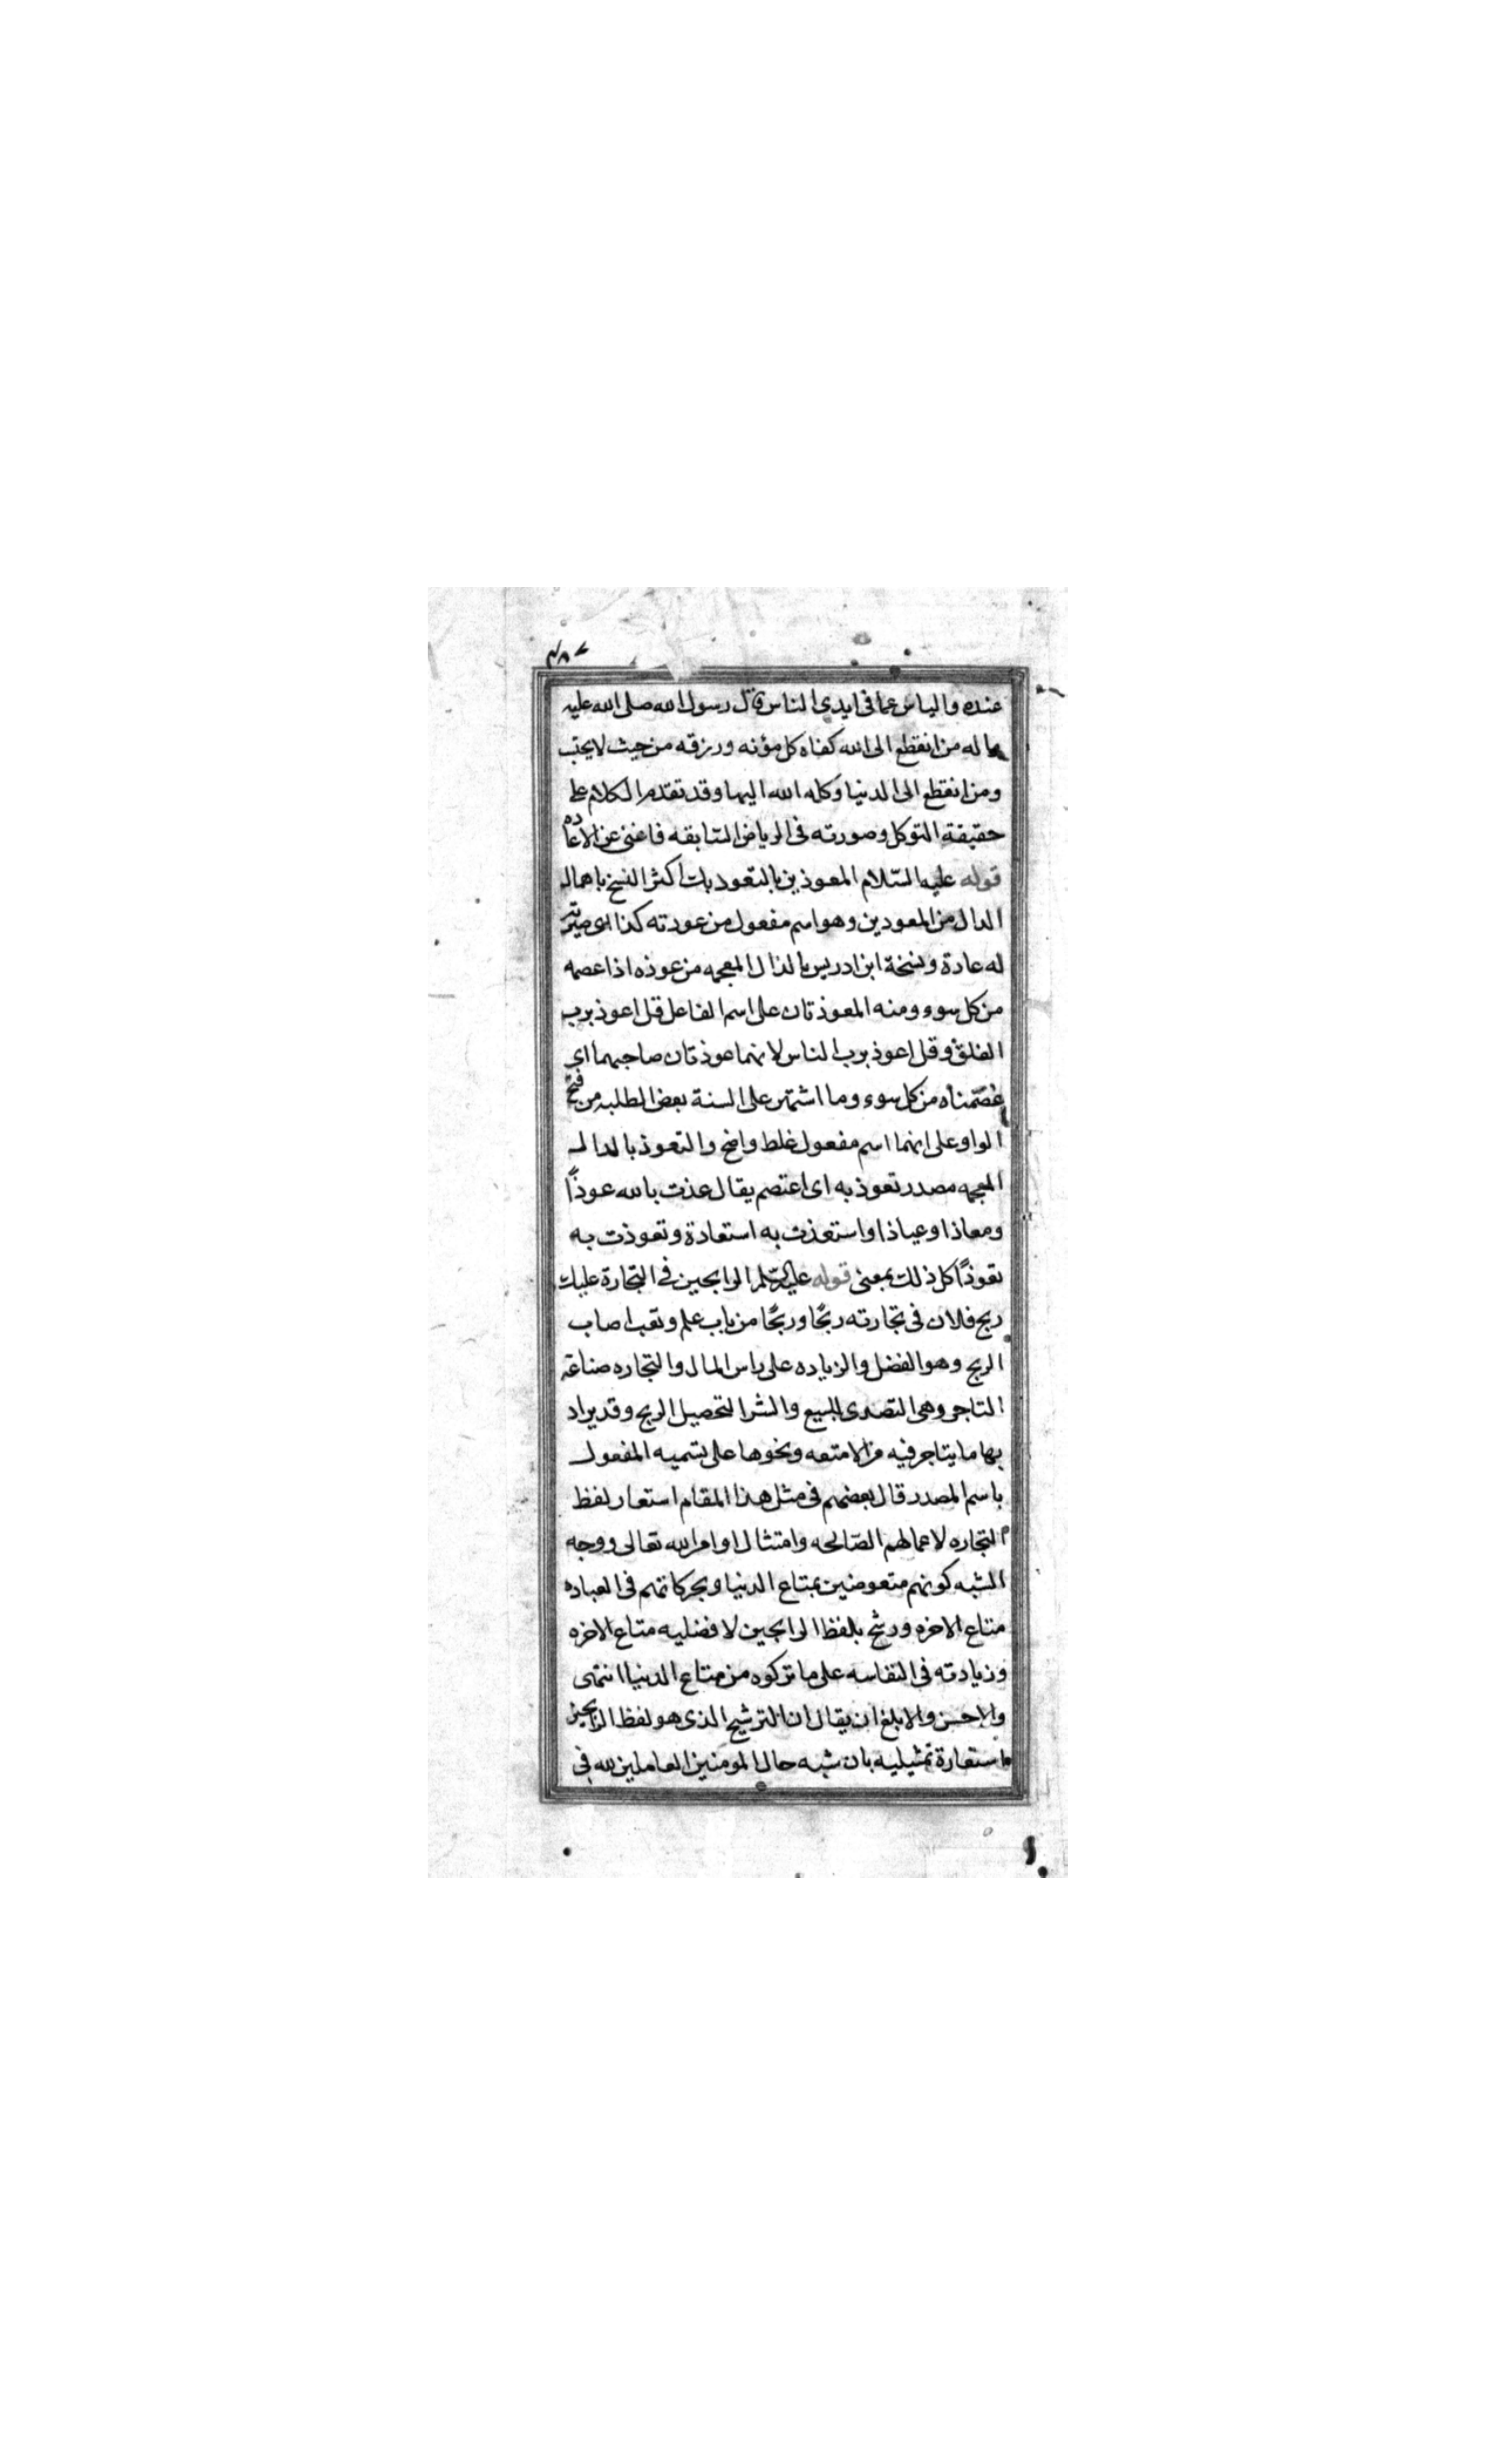 ٤٨٧
عنده والياس عما فى ايدى الناس قال رسول الله صلى الله عليه
واله من انقطع الى الله كفاه كل مؤنه ورزقه من حيث لا يحتسب
ومن انقطع الى الدنيا وكله الله اليها وقد تقدم الكلام على
حقيقة التوكل وصورته فى الرياض السابقه فاغنى عن الاعاده
قوله عليه السلام المعوذين بالتعوذ بك اكثر النسخ باهمال
الدال من المعودين وهو اسم مفعول من عودته كذا اى صيرته
له عادة ونسخة ابن ادريس بالذال المعجمه من عوذه اذا عصمه
من كل سوء ومنه المعوذتان على اسم الفاعل قل اعوذ برب
الفلق وقل اعوذ برب الناس لانهما عوذتان صاحبهما اى
عصمتاه من كل سوء وما اشتهر على السنة بعض الطلبه من فتح
الواو على انهما اسم مفعول غلط واضح والتعوذ بالذال
المعجمه مصدر تعوذ به اى اعتصم يقال عذت بالله عوذاً
ومعاذا وعياذا واستعذت به استعاذة وتعوذت به
تعوذاً كل ذلك بمعنى قوله عليه السلم الرابحين فى التجارة عليك
ربح فلان فى تجارته ربحًا وربحًا من باب علم وتعب اصاب
الربح وهو الفضل والزياده على راس المال والتجاره صناعة
التاجر وهى التصدى للبيع والشرا لتحصيل الربح وقد يراد
بها ما يتاجر فيه من الامتعه ونحوها على تسميه المفعول
باسم المصدر قال بعضهم فى مثل هذا المقام استعار لفظ
التجاره لاعمالهم الصالحه وامتثال اوامر الله تعالى ووجه
الشبه كونهم متعوضين بمتاع الدنيا وبحركاتهم فى العباده
متاع الاخره ورشح بلفظ الرابحين لافضليه متاع الاخره
وزيادته فى النفاسه على ما تركوه من متاع الدنيا انتهى
والاحسن والابلغ ان يقال ان الترشيح الذى هو لفظ الرابحين
استعارة تمثيليه بان شبه حال المومنين العاملين لله فى